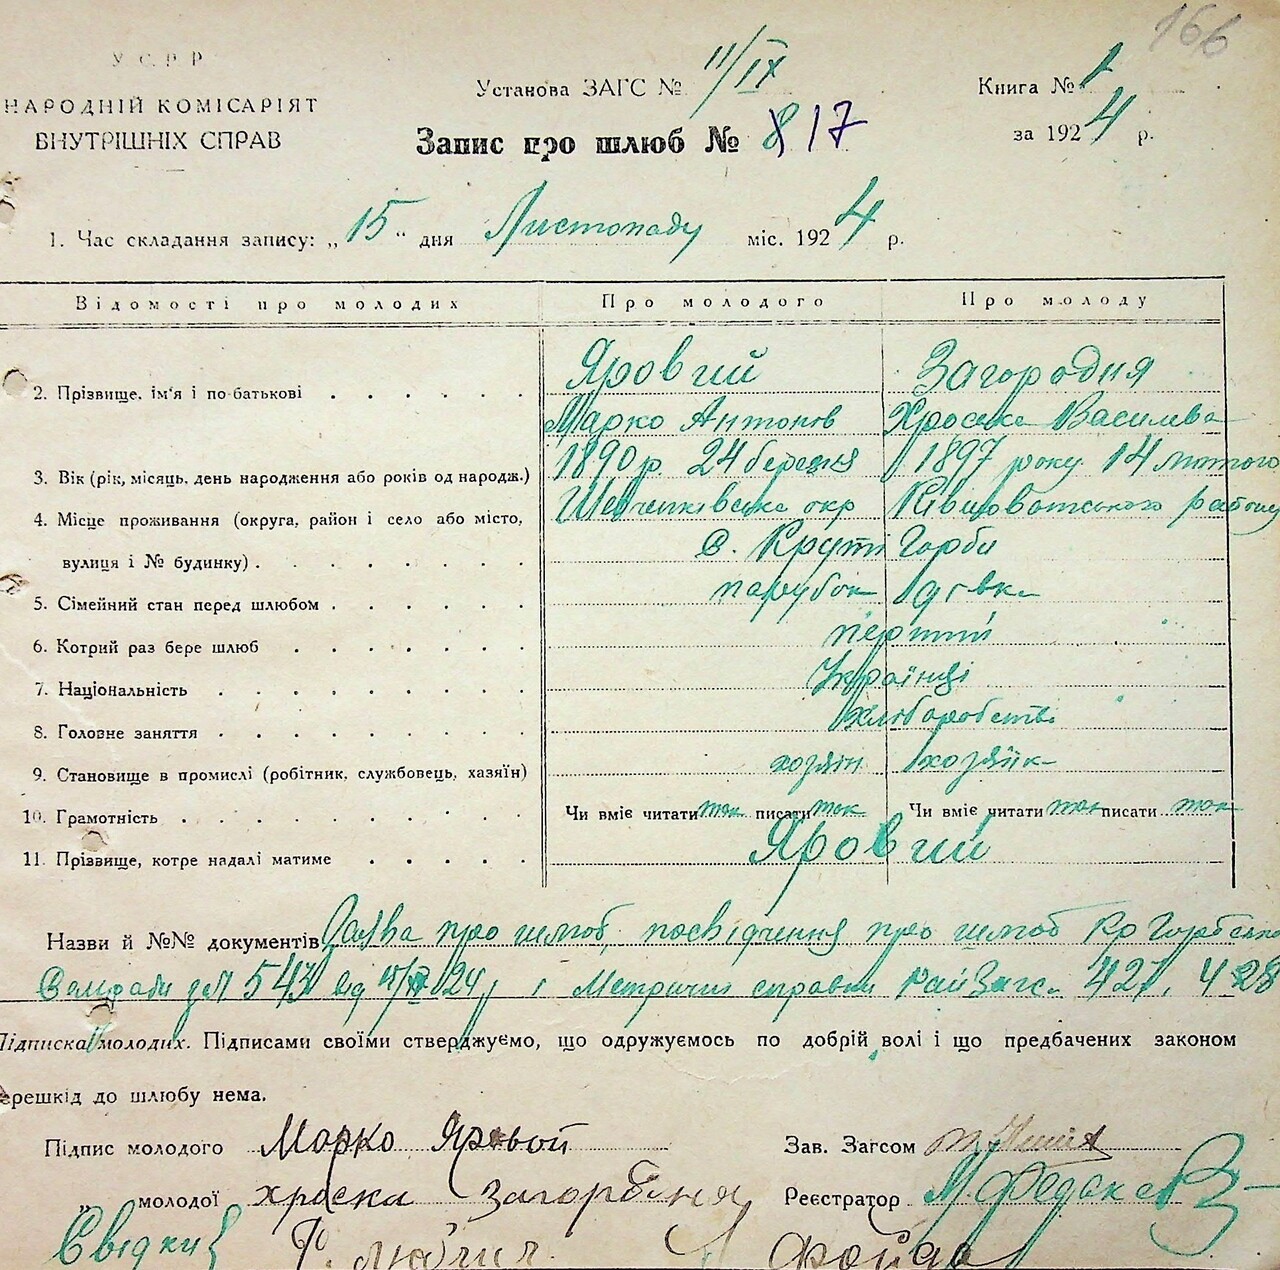 166
У С Р Р
НАРОДНІЙ КОМІСАРІЯТ
ВНУТРІШНІХ СПРАВ
Установа ЗАГС № 11/IX
Книга № 1
Запис про шлюб № 817
за 1924 р.
1. Час складання запису: „15“ дня Листопаду міс. 1924 р.
Відомості про молодих Про молодого Про молоду
2. Прізвище, ім'я і по-батькові Яровий Загородня
Марко Антонів Хроська Василева
3. Вік (рік, місяць, день народження або років од народж.) 1890 р. 24 березня 1897 року 14 лютого
4. Місце проживання (округа, район і село або місто, Шевченківська окр Ківшоватського району
вулиця і № будинку) с. Круті Горби
5. Сімейний стан перед шлюбом парубок дівка
6. Котрий раз бере шлюб перший
7. Національність Українці
8. Головне заняття хліборобство
9. Становище в промислі (робітник, службовець, хазяїн) хозяін хозяйка
10. Грамотність Чи вміє читати так писати так Чи вміє читати так писати так
11. Прізвище, котре надалі матиме Яровий
Назви й №№ документів Заява про шлюб, посвідчення про шлюб Кр Горбської
Сельради 543 від 24 і Метричні справки РайЗагс 427, 428
Підписка молодих. Підписами своїми стверджуємо, що одружуємось по добрій волі і що предбачених законом
перешкід до шлюбу нема.
Підпис молодого Марко Яровой Зав. Загсом
„ молодої хроска Загордня Реєстратор М. Федак
Свідки